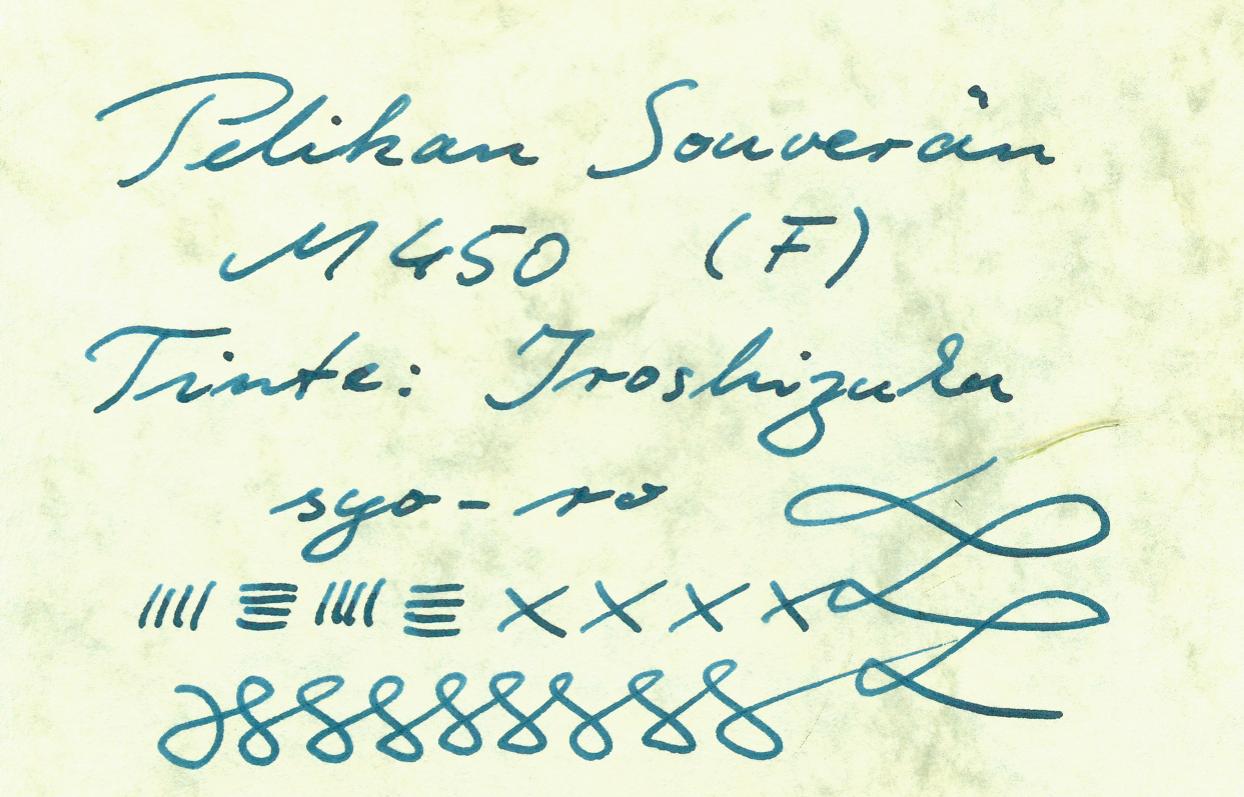 Pelikan Souverän
M450 (F)
Tinte: Iroshizuku
syo-ro